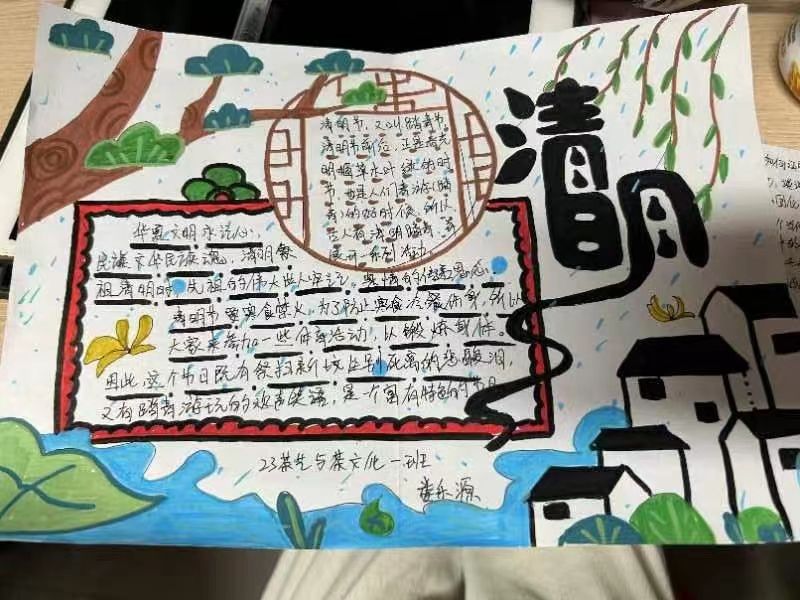 清明
清明节，又叫踏青节，
清明节前后，正是春光
明媚草木吐绿的时
节，也是人们春游（踏
青）的好时候，所以
古人有清明踏青，并
展开一系列活动。
华夏文明永记心，
民族 民族魂，清明祭
祖清明时，先祖的伟大世人 ，
清明节要寒食禁火，为了防止寒食冷餐伤身，所以
大家来参加一些体育活动，以锻炼身体。
因此，这个节日既有祭扫新坟生别死离的悲酸泪，
又有踏青游玩的欢声笑语，是一个富有特色的节日
23茶艺与茶文化一班
乐源
如何